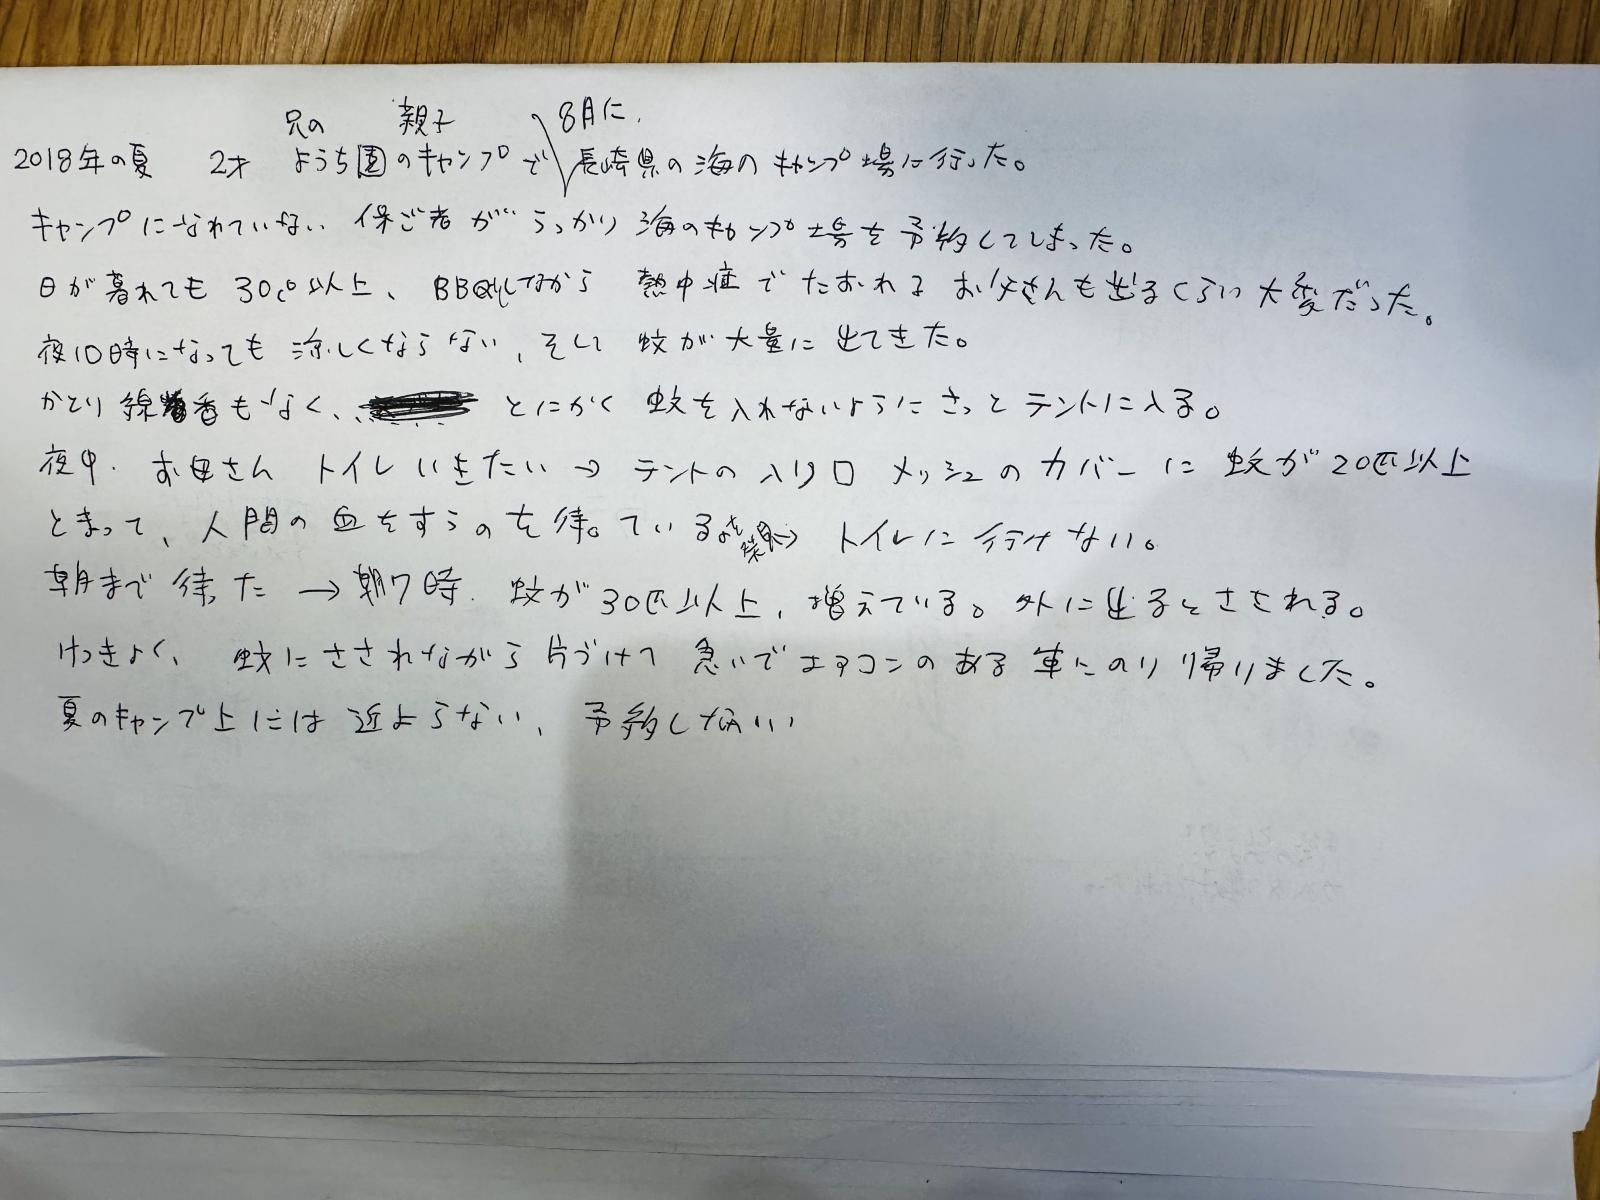 兄の 親子 8月に、
2018年の夏 2才 ようち園のキャンプで 長崎県の海のキャンプ場に行った。
キャンプになれていない 保ご者が うっかり 海のキャンプ場を予約してしまった。
日が暮れても 30℃以上、BBQしながら 熱中症でたおれる お父さんも出るくらい大変だった。
夜10時になっても 涼しくならない、そして 蚊が大量に出てきた。
かとり線香もなく、 とにかく 蚊を入れないようにさっとテントに入る。
夜中、お母さん トイレいきたい→ テントの入り口 メッシュのカバーに 蚊が20匹以上
とまって、人間の血をすうのを待っている →トイレに行けない。
朝まで待った →朝7時、蚊が30匹以上、増えている。外に出るとさされる。
けっきょく、蚊にさされながら片づけて 急いでエアコンのある車にのり帰りました。
夏のキャンプ上には近よらない、予約しない